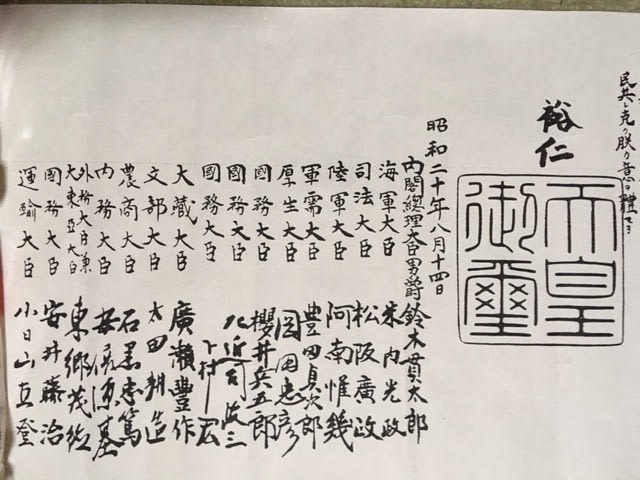 民其レ克ク朕カ意ヲ體セヨ
裕仁
天皇
御璽
昭和二十年八月十四日
内閣總理大臣男爵 鈴木貫太郎
海軍大臣 米内光政
司法大臣 松阪廣政
陸軍大臣 阿南惟幾
軍需大臣 豊田貞次郎
厚生大臣 岡田忠彦
國務大臣 櫻井兵五郎
國務大臣 左近司政三
國務大臣 下村宏
大藏大臣 廣瀬豊作
文部大臣 太田耕造
農商大臣 石黒忠篤
内務大臣 安倍源基
外務大臣兼
大東亞大臣 東郷茂徳
國務大臣 安井藤治
運輸大臣 小日山直登